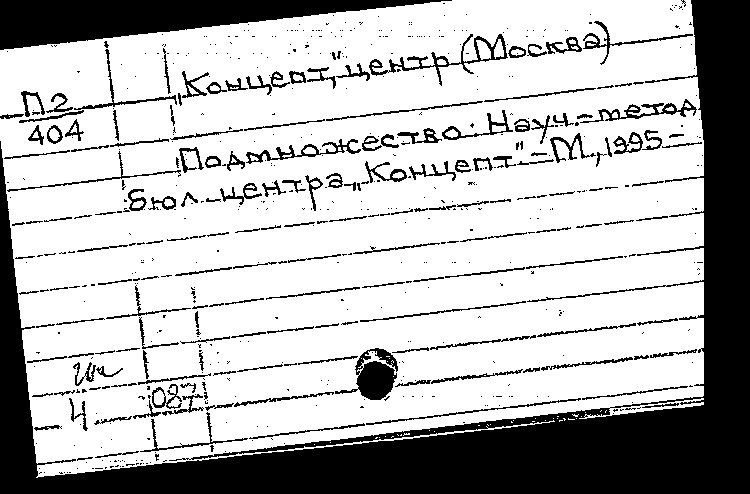 П2
404
„Концепт," центр (Москва)
Подмножество: Науч.-метод
бюл. центра „Концепт".-М., 1995-
Ч 087